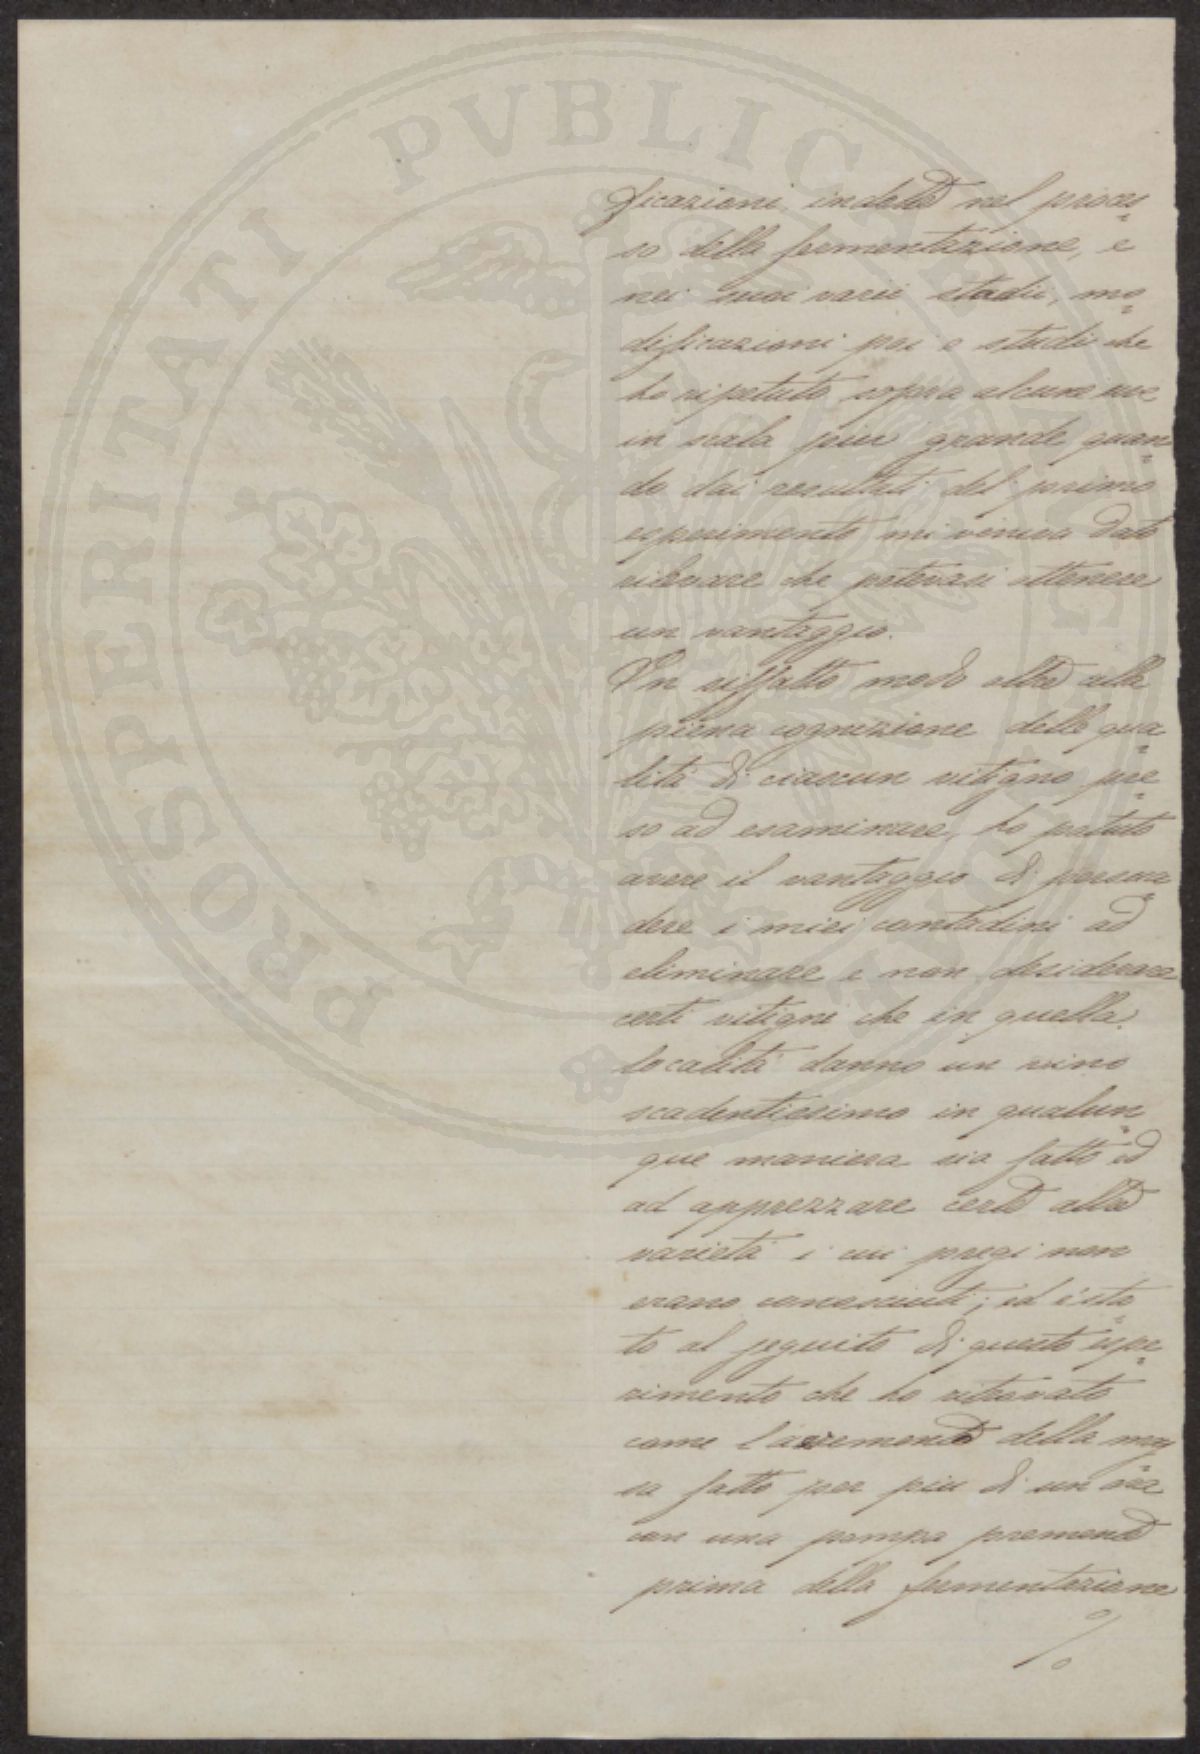 PROSPERITATI PVBLICAE AVGENDAE
ficazioni indotte nel proces
so della fermentazione, e
nei suoi varii stadii, mo
dificazioni poi e studi che
ho ripetuto sopra alcune uve
in scala più grande quan
do dai resultati del primo
esperimento mi veniva dato
rilevare che potevasi ottenere
un vantaggio.
In siffatto modo oltre alla
piena cognizione delle qua
lità di ciascun vitigno pre
so ad esaminare, ho potuto
avere il vantaggio di persua
dere i miei contadini ad
eliminare e non desiderare
certi vitigni che in quella
località danno un vino
scadentissimo in qualun
que maniera sia fatto ed
ad apprezzare certe altre
varietà i cui pregi non
erano conosciuti; ed è sta
to al seguito di questo espe
rimento che ho ritrovato
come l'areamento della mas
sa fatto per più di un ora
con una pompa premente
prima della fermentazione
%